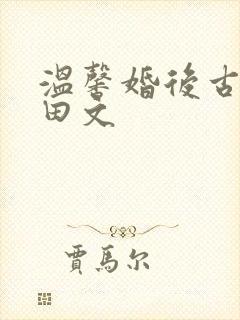 溫馨婚後古
田文
賈馬尔